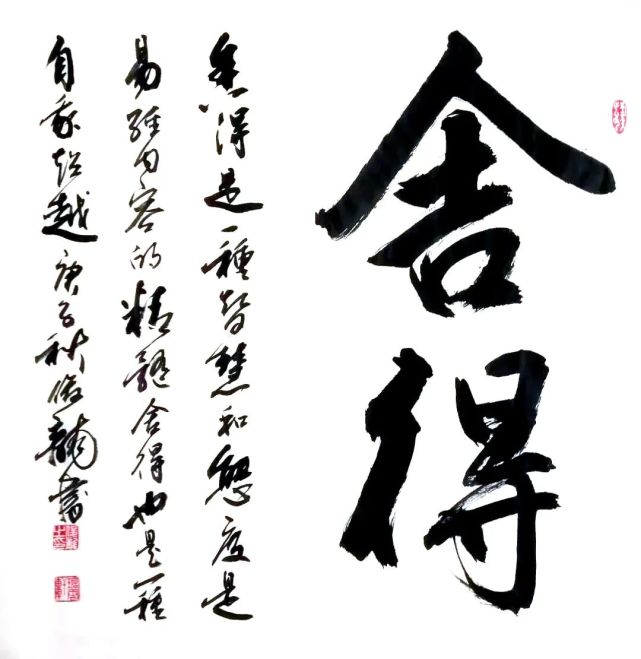 舍得
舍得是一種智慧和態度是
易經内容的精髓舍得也是一種
自我超越庚子秋俊龍書